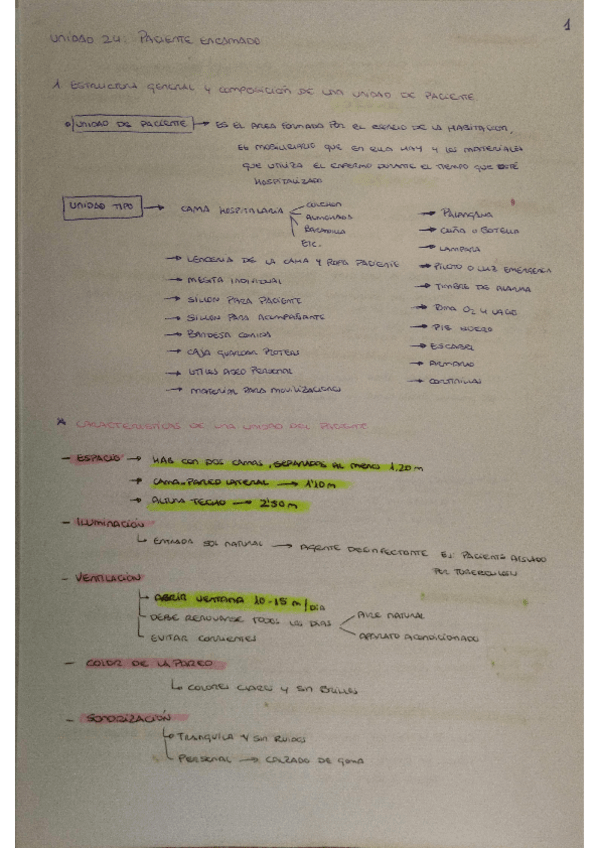 1
UNIDAD 24: PACIENTE ENCAMADO
1 ESTRUCTURA GENERAL Y COMPOSICIÓN DE UNA UNIDAD DE PACIENTE
UNIDAD DE PACIENTE → ES EL AREA FORMADA POR EL ESPACIO DE LA HABITACION,
EL MOBILIARIO QUE EN ELLA HAY Y LOS MATERIALES
QUE UTILIZA EL ENFERMO DURANTE EL TIEMPO QUE ESTÉ
HOSPITALIZADO
UNIDAD TIPO → CAMA HOSPITALARIA
COLCHON
ALMOHADA
BARANDILLA
ETC.
→ LENCERIA DE LA CAMA Y ROPA PACIENTE
→ MESITA INDIVIDUAL
→ SILLON PARA PACIENTE
→ SILLON PARA ACOMPAÑANTE
→ BANDEJA COMIDA
→ CAJA GUARDAR PROTESIS
→ UTILES ASEO PERSONAL
→ MATERIAL PARA MOVILIZACIONES
→ PALANGANA
→ CUÑA O BOTELLA
→ LAMPARA
→ PILOTO O LUZ EMERGENCIA
→ TIMBRE DE ALARMA
→ TOMA O2 Y VACIO
→ PIE SUERO
→ ESCABEL
→ ARMARIO
→ CORTINILLAS
* CARACTERISTICAS DE UNA UNIDAD DEL PACIENTE
- ESPACIO → HAB CON DOS CAMAS, SEPARADAS AL MENO 1,20 m
→ CAMA-PARED LATERAL → 1'10 m
→ ALTURA TECHO → 2'50 m
- ILUMINACIÓN
↳ ENTRADA SOL NATURAL → AGENTE DESINFECTANTE EJ: PACIENTE AISLADO
POR TUBERCULOSIS
- VENTILACIÓN
→ ABRIR VENTANA 10-15 m/DIA
→ DEBE RENOVARSE TODOS LOS DIAS
AIRE NATURAL
APARATO ACONDICIONADO
→ EVITAR CORRIENTES
- COLOR DE LA PARED
↳ COLORES CLAROS Y SIN BRILLOS
- SONORIZACIÓN
→ TRANQUILA Y SIN RUIDOS
→ PERSONAL → CALZADO DE GOMA